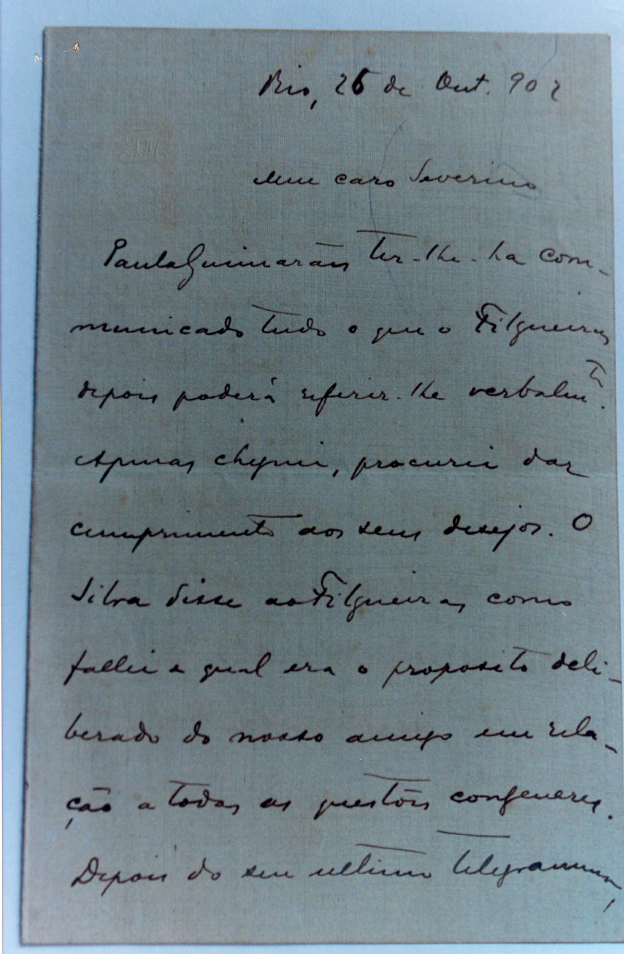 Rio, 26 de Out. 902
Meu caro Severino
Paula Guimarães ter-lhe-ha com-
municado tudo o que o Filgueiras
depois poderá referir-lhe verbalmte.
Apenas cheguei, procurei dar
cumprimento aos seus desejos. O
Silva disse ao Filgueiras como
fallei e qual era o proposito deli-
berado do nosso amigo em rela-
ção a todas as questões congeneres.
Depois do seu ultimo telegramma,